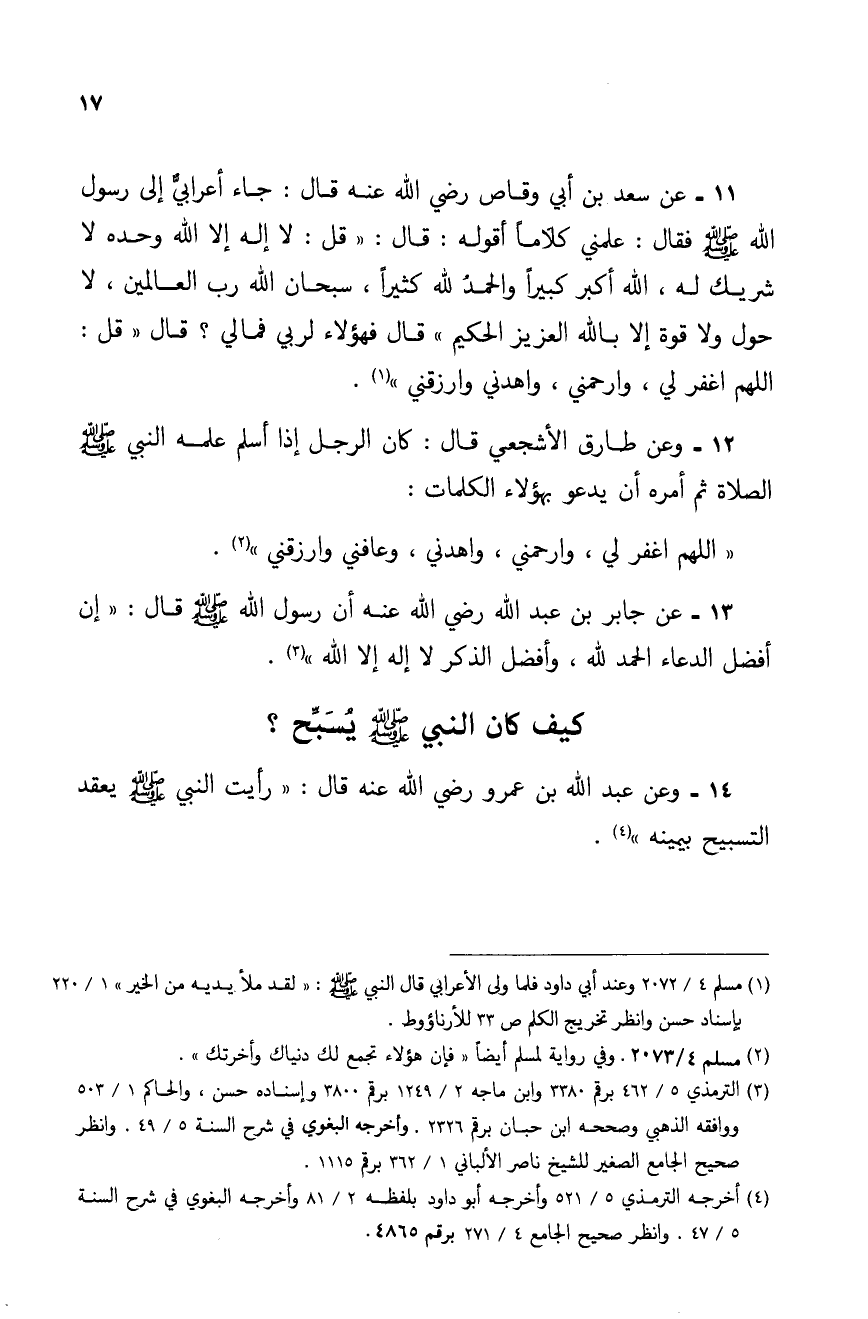 ١٧
١١ ـ عن سعد بن أبي وقـاص رضي الله عنـه قـال : جـاء أعرابيٌّ إلى رسول
الله ﷺ فقال : علمني كلامـاً أقولـه : قـال : « قل : لا إلـه إلا الله وحـده لا
شريـك لـه ، الله أكبر كبيراً والحمـدُ لله كثيراً ، سبحـان الله رب العـالمين ، لا
حول ولا قوة إلا بـالله العزيز الحكيم » قـال فهؤلاء لربي فمـالي ؟ قـال « قل :
اللهم اغفر لي ، وارحمني ، واهدني وارزقني »(١) .
١٢ ـ وعن طـارق الأشجعي قـال : كان الرجـل إذا أسلم علمـه النبي ﷺ
الصلاة ثم أمره أن يدعو بهؤلاء الكلمات :
« اللهم اغفر لي ، وارحمني ، واهدني ، وعافني وارزقني »(٢) .
١٣ ـ عن جابر بن عبد الله رضي الله عنـه أن رسول الله ﷺ قـال : « إن
أفضل الدعاء الحمد لله ، وأفضل الذكر لا إله إلا الله »(٣) .
كيف كان النبي ﷺ يُسَبِّح ؟
١٤ ـ وعن عبد الله بن عمرو رضي الله عنه قال : « رأيت النبي ﷺ يعقد
التسبيح بيمينه »(٤) .
(١) مسلم ٤ / ٢٠٧٢ وعند أبي داود فلما ولى الأعرابي قال النبي ﷺ : « لقـد ملأ يـديـه من الخير » ١ / ٢٢٠
بإسناد حسن وانظر تخريج الكلم ص ٣٣ للأرناؤوط .
(٢) مسلم ٢٠٧٣/٤ . وفي رواية لمسلم أيضاً « فإن هؤلاء تجمع لك دنياك وأخرتك » .
(٣) الترمذي ٥ / ٤٦٢ برقم ٣٣٨٠ وابن ماجه ٢ / ١٢٤٩ برقم ٣٨٠٠ وإسنـاده حسن ، والحـاكم ١ / ٥٠٣
ووافقه الذهبي وصححـه ابن حبـان برقم ٢٣٢٦ . وأخرجه البغوي في شرح السنـة ٥ / ٤٩ . وانظر
صحيح الجامع الصغير للشيخ ناصر الألباني ١ / ٣٦٢ برقم ١١١٥ .
(٤) أخرجـه الترمـذي ٥ / ٥٢١ وأخرجـه أبو داود بلفظـه ٢ / ٨١ وأخرجـه البغوي في شرح السنـة
٥ / ٤٧ . وانظر صحيح الجامع ٤ / ٢٧١ برقم ٤٨٦٥ .